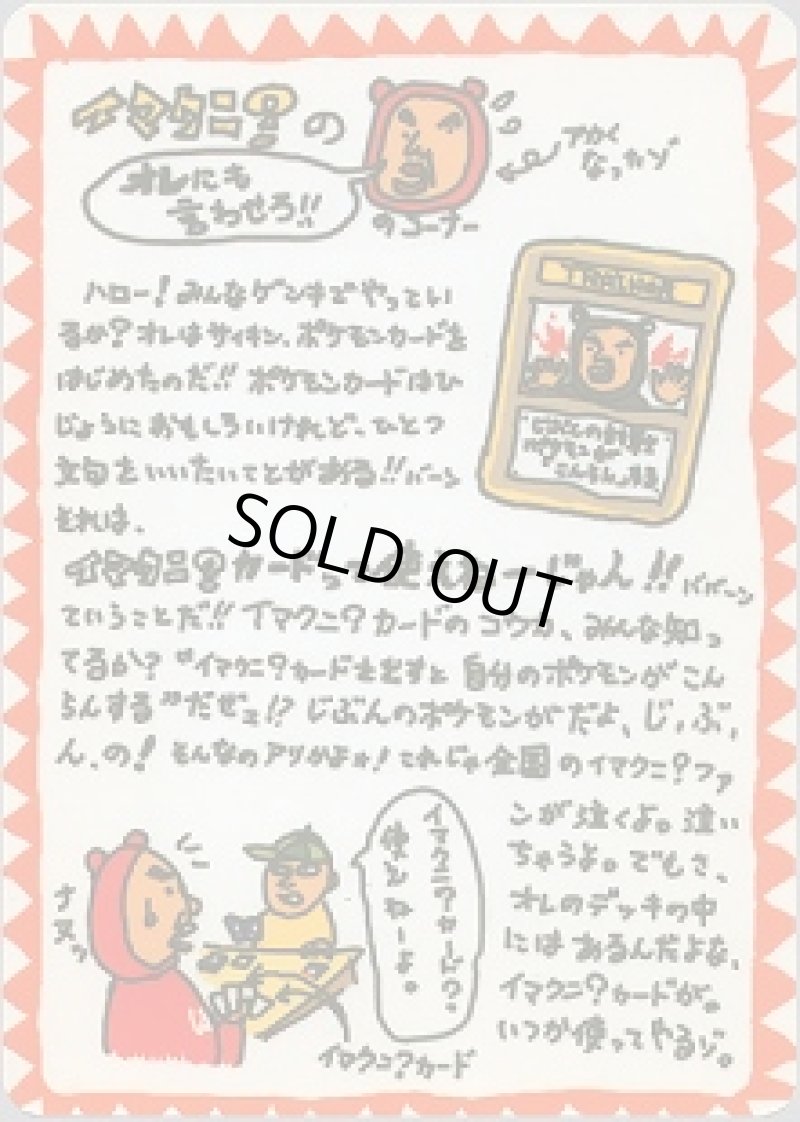 イマクニ?の
オレにも
言わせろ!!
のコーナー
アカく
なったゾ
ハロー!みんなゲンキでやってい
るか?オレはサイキン、ポケモンカードを
はじめたのだ!!ポケモンカードはひ
じょうにおもしろいけれど、ひとつ
文句をいいたいことがある!!バーン
それは、
イマクニ?カードって使えねーじゃん!!ババーン
SOLD OUT
ていうことだ!!イマクニ?カードのコウカ、みんな知っ
てるか?"イマクニ?カードを出すと自分のポケモンがこん
らんする"だぜェ!?じぶんのポケモンがだよ、じ、ぶ、
ん、の!そんなのアリかよォ!これじゃ全国のイマクニ?ファ
ンが泣くよ。泣い
ちゃうよ。でもさ、
オレのデッキの中
にはあるんだよな、
イマクニ?カードが。
いつか使ってやるゾ。
TRAINER
じぶんの
ポケモンが
こんらんする
イマクニ?カード?
使えねーよ。
イマクニ?カード